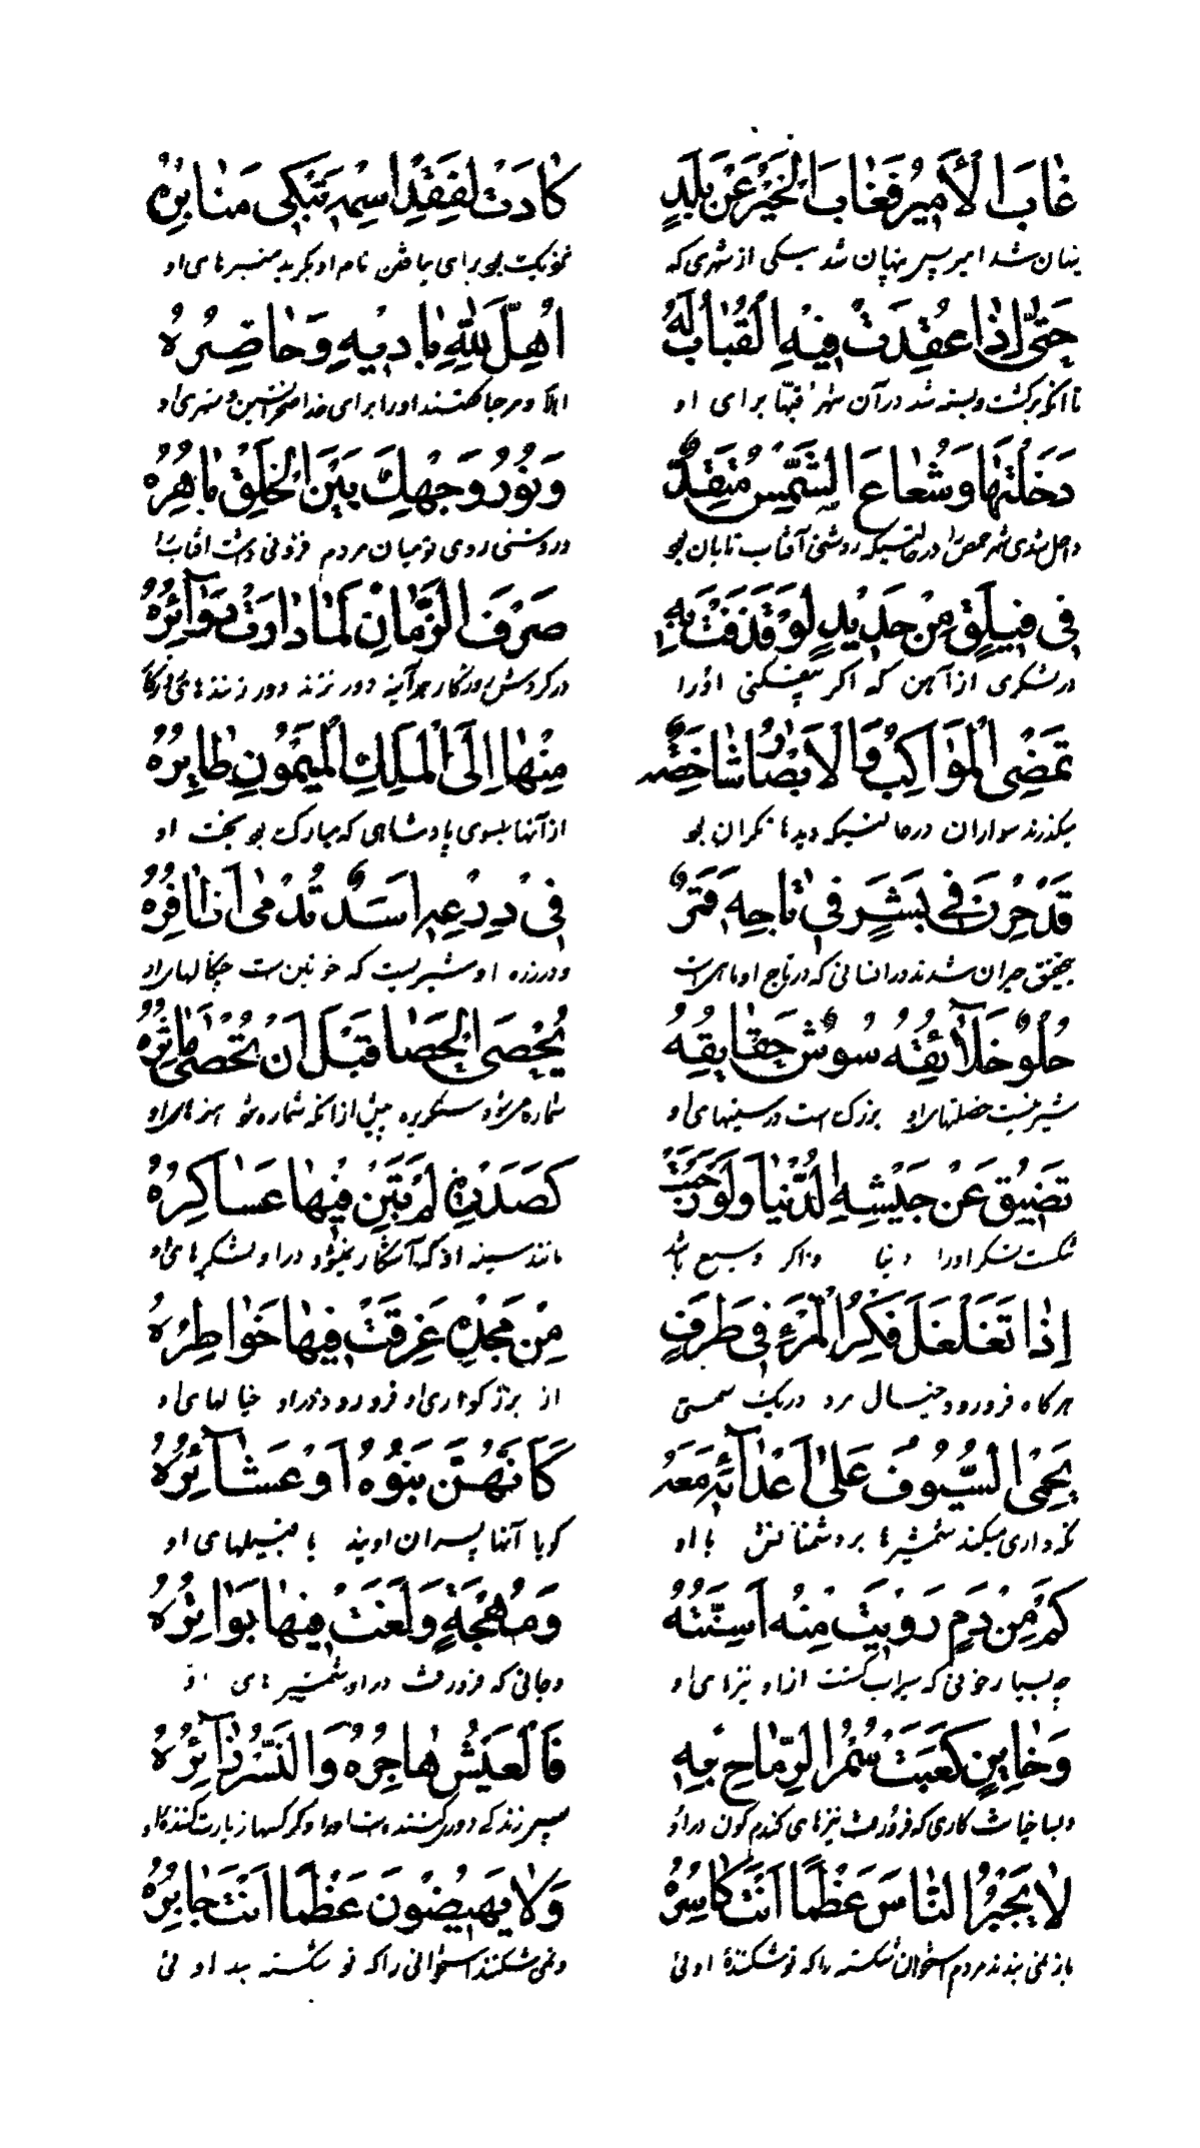 غَابَ الْأَمِيرُ فَغَابَ الْخَيْرُ عَنْ بَلَدٍ كَادَتْ لِفَقْدِ اسْمِهِ تَبْكِي مَنَابِرُهُ
پنهان شد امیر پس پنهان شد نیکی از شهری که نزدیک بود برای نیافتن نام او بگرید منبرهای او
حَتَّى إِذَا عُقِدَتْ فِيهِ الْقُبَابُ لَهُ أَهَلَّ لِلَّهِ بَادِيهِ وَحَاضِرُهُ
تا آنکه برگشت و بسته شد در آن شهر قبها برای او اهلا و مرحبا گفتند او را برای خدا صحرانشین و شهری او
دَخَلْتَهَا وَشُعَاعَ الشَّمْسِ مُتَّقِدٌ وَنُورُ وَجْهِكَ بَيْنَ الْخَلْقِ بَاهِرُهُ
داخل شدی شهر حمص را در حالتیکه روشنی آفتاب تابان بود و روشنی روی تو میان مردم فزونی داشت آفتاب را
فِي فَيْلَقٍ مِنْ حَدِيدٍ لَوْ قَذَفْتَ بِهِ صَرْفَ الزَّمَانِ لَمَا دَارَتْ دَوَائِرُهُ
در لشکری از آهن که اگر بیفکنی او را در گردش روزگار هرآینه دور نزند دور زننده‌های
تَمْضِي الْمَوَاكِبُ وَالْأَبْصَارُ شَاخِصَةٌ مِنْهَا إِلَى الْمَلِكِ الْمَيْمُونِ طَائِرُهُ
میگذرند سواران در حالتیکه دیدها نگران بود از آنها بسوی پادشاهی که مبارک بود بخت او
قَدْ حِرْنَ فِي بَشَرٍ فِي تَاجِهِ قَمَرٌ فِي دِرْعِهِ أَسَدٌ تُدْمِي أَظَافِرُهُ
بتحقیق حیران شدند در انسانی که در تاج او ماهی است و در زره او شیریست که خونین است چنگالها مر او را
حُلْوٌ خَلَائِقُهُ شُوسٌ حَقَائِقُهُ يُحْصَى الْحَصَا قَبْلَ أَنْ تُحْصَى مَآثِرُهُ
شیرینست خصلتها مر او را بزرگ است شماره میشود سنگریزه پیش از آنکه شماره شود هنرها مر او را
تَضِيقُ عَنْ جَيْشِهِ الدُّنْيَا وَلَوْ رَحُبَتْ كَصَدْرِهِ لَمْ تَبِنْ فِيهَا عَسَاكِرُهُ
تنگست لشکر او را دنیا و اگر وسیع باشد مانند سینه او که آشکار نمیشود در او لشکرهای او
إِذَا تَغَلْغَلَ فِكْرُ الْمَرْءِ فِي طَرَفٍ مِنْ مَجْدِهِ غَرِقَتْ فِيهَا خَوَاطِرُهُ
هرگاه فرورود خیال مرد در یک سمتی از بزرگواری او فرورود در او خیالهای او
يَحْمِي السُّيُوفَ عَلَى أَعْدَائِهِ مَعَهُ كَأَنَّهُنَّ بَنُوهُ أَوْ عَشَائِرُهُ
نگهداری میکند شمشیرها بر دشمنانش با او گویا آنها پسران اویند یا قبیلهای او
كَمْ مِنْ دَمٍ رَوِيَتْ مِنْهُ أَسِنَّتُهُ وَمُهْجَةٍ وَلَغَتْ فِيهَا بَوَاتِرُهُ
چه بسیار خونی که سیراب گشت از او نیزهای او و جانی که فرورفت در او شمشیرهای او
وَحَائِنٍ لَعِبَتْ سُمْرُ الرِّمَاحِ بِهِ فَالْعَيْشُ هَاجِرُهُ وَالنَّسْرُ زَائِرُهُ
و بسا خیانت کاری که فرورفت نیزهای گندم گون در او پس زندگی دوری کننده است او را و کرکسها زیارت کننده او
لَا يَجْبُرُ النَّاسُ عَظْمًا أَنْتَ كَاسِرُهُ وَلَا يَهِيضُونَ عَظْمًا أَنْتَ جَابِرُهُ
باز نمی بندند مردم استخوان شکسته را که تو شکنندهٔ اوئی و نمی شکنند استخوانی را که تو شکسته بند اوئی